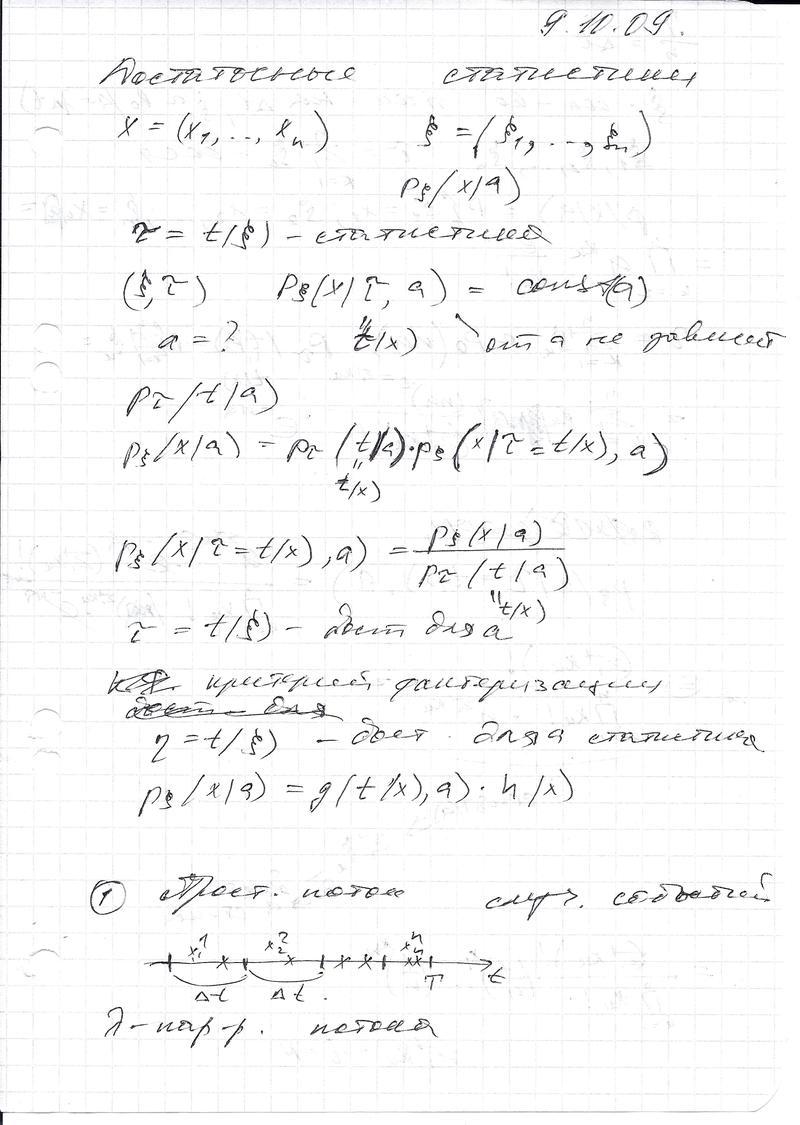 9.10.09.
Достаточные статистики
x = (x₁, .., xₙ) ξ = (ξ₁, .., ξₙ)
pξ(x|a)
τ = t(ξ) – статистика
(ξ,τ) pξ(x|τ, a) = const(a)
a = ? t(x) от a не зависит
pτ(t|a)
pξ(x|a) = pτ(t|a)·pξ(x|τ = t(x), a)
t(x)
pξ(x|τ = t(x), a) = pξ(x|a)
pτ(t|a)
t(x)
τ = t(ξ) – дост для a
критерий факторизации
η = t(ξ) – дост. для a статистика
pξ(x|a) = g(t(x), a)·h(x)
① Прост. поток случ. событий
1 2 n
x₁ x₂ xₙ
Δt Δt T t
λ – пар-р. потока